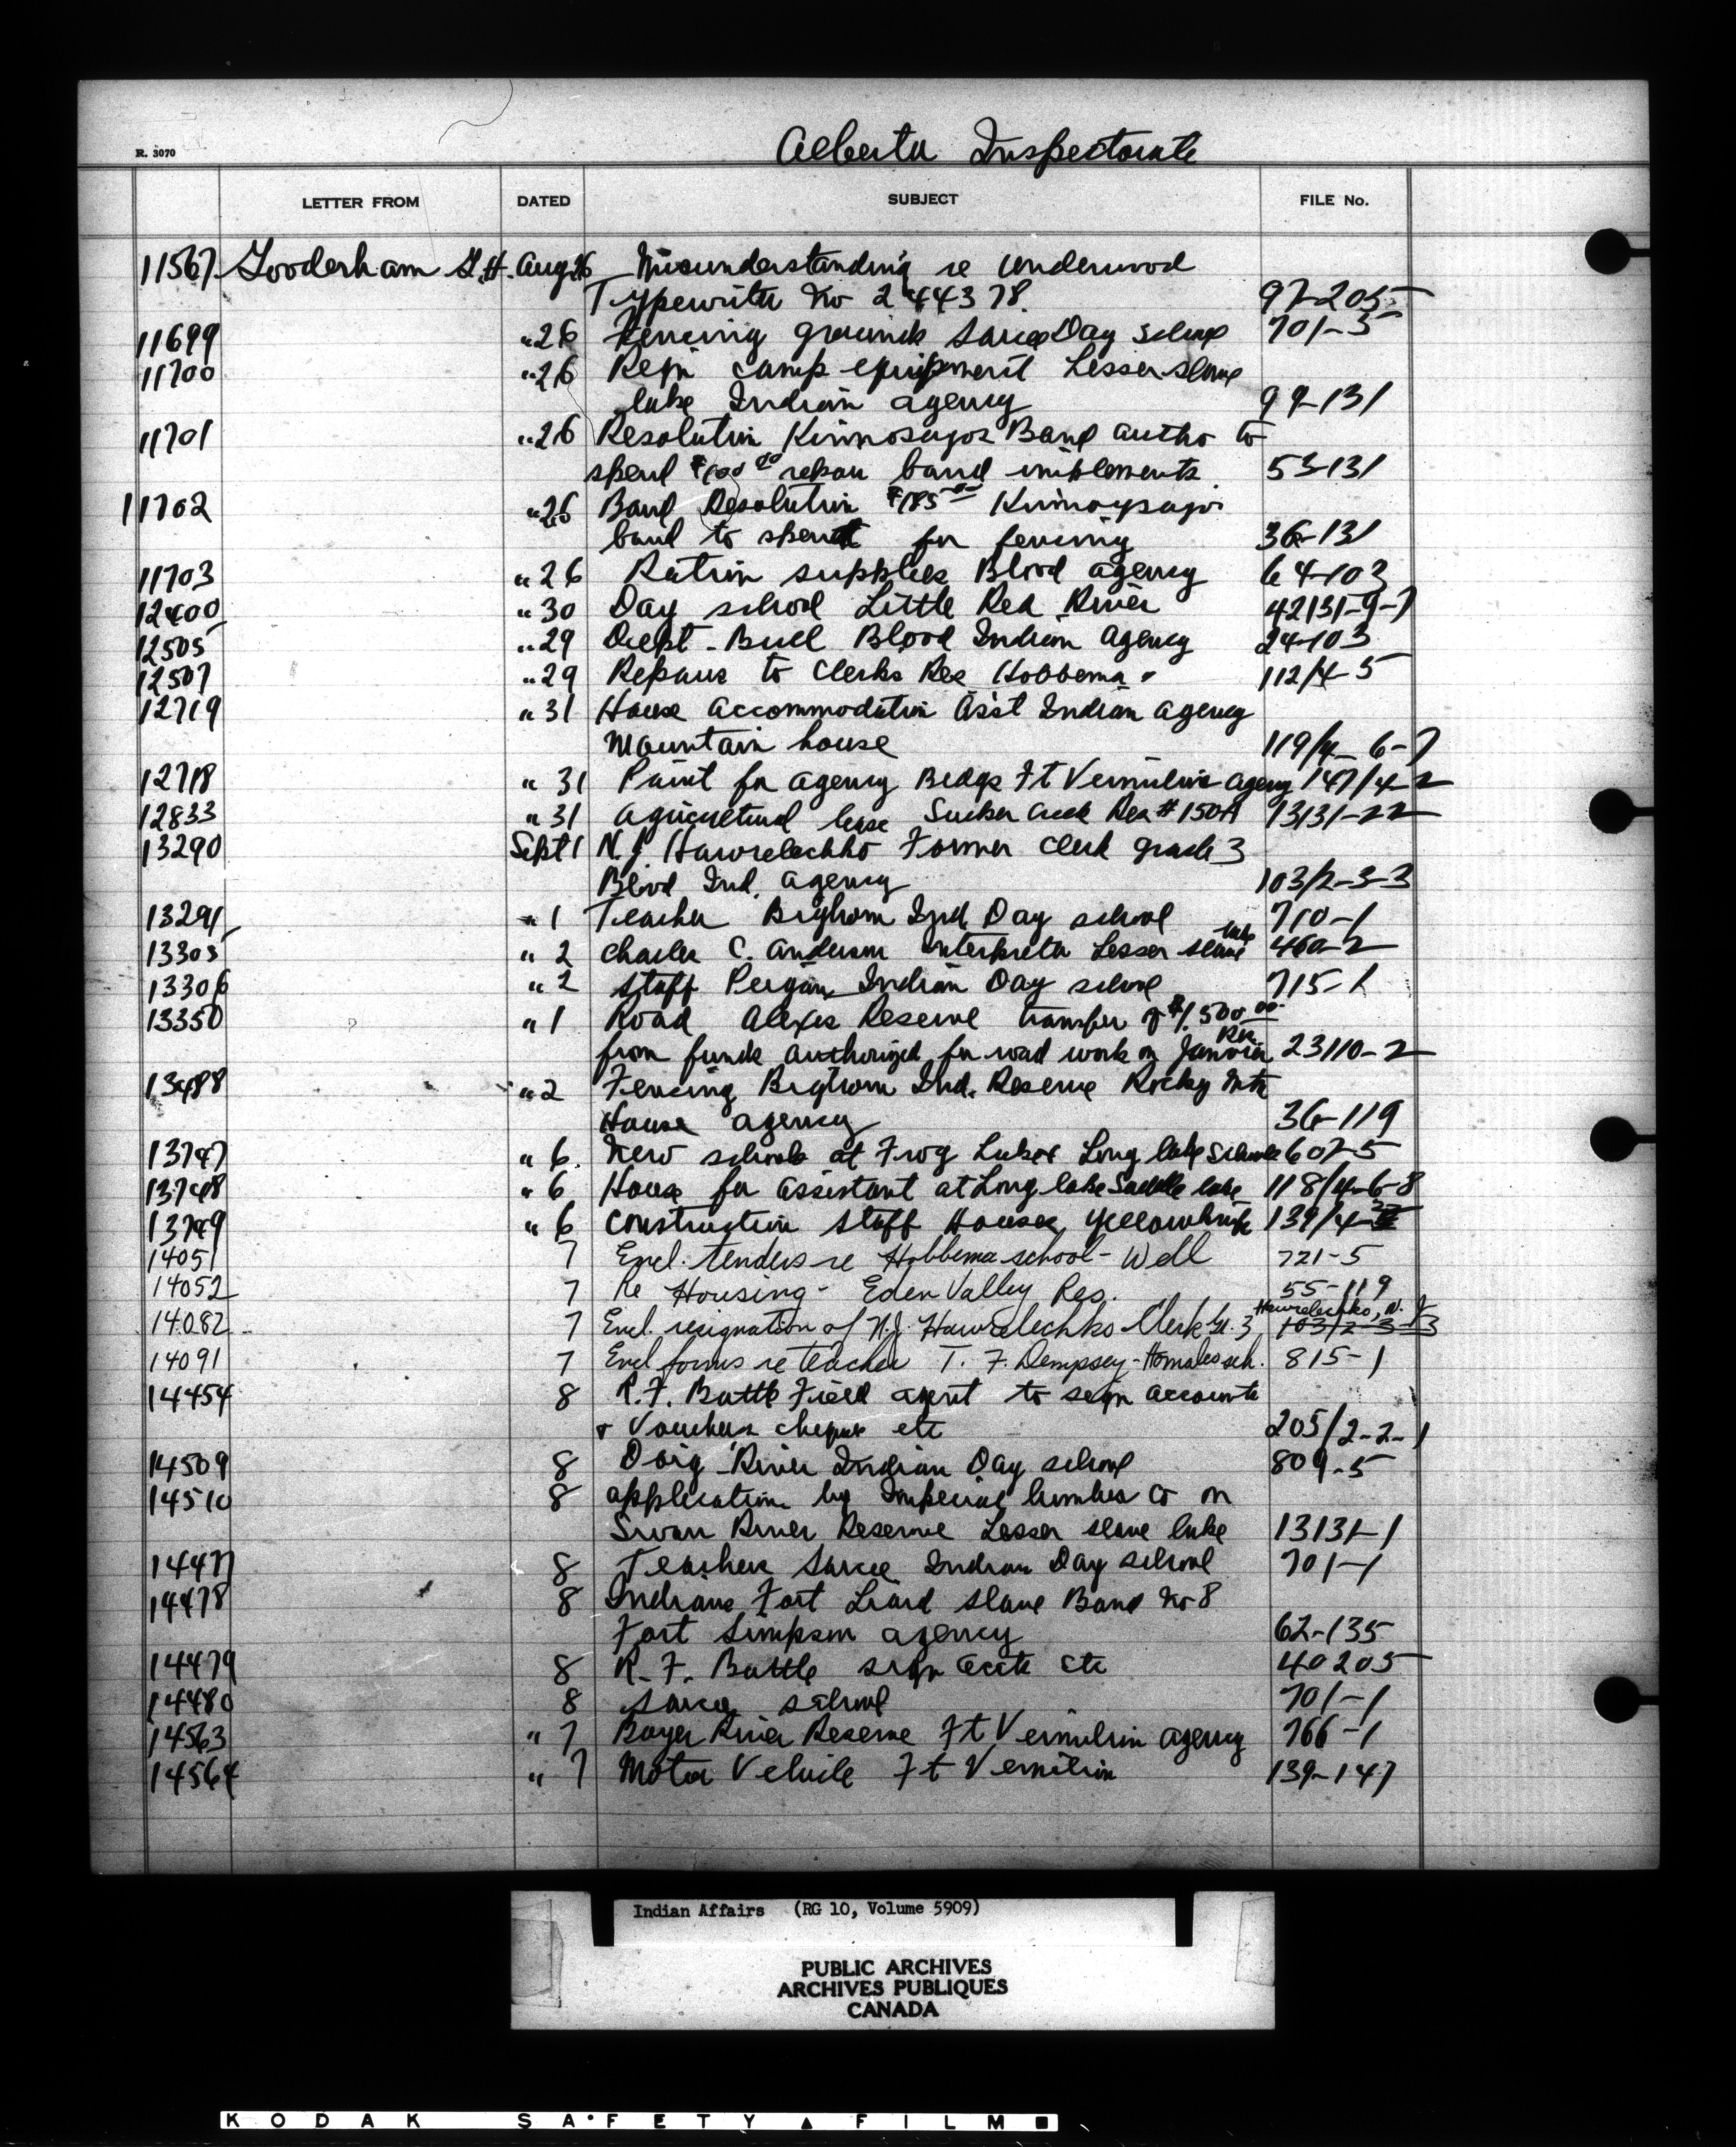 Alberta Inspectorate
R. 3070
LETTER FROM DATED SUBJECT FILE No.
11567 Gooderham G.H. Aug 26 Misunderstanding re Underwood
Typewriter No 244378. 97-205
11699 " 26 Fencing grounds Sarcee Day School 701-5
11700 " 26 camp equipment Lesser Slave
lake Indian agency 99-131
11701 " 26 Resolution Band autho to
spend $100 00 repair band implements 53-131
11702 " 26 Band Resolution $185 00
band to spend for fencing 36-131
11703 " 26 Ration supplies Blood agency 64-103
12400 " 30 Day school Little Red River 42131-9-7
12505 " 29 Dept. Bull Blood Indian Agency 24-103
12507 " 29 Repairs to Clerks Res Hobbema 112/4-5
12719 " 31 House accommodation Asst Indian agency
Mountain house 119/4-6-7
12718 " 31 Paint for agency Bldgs Ft Vermilion agency 147/4-2
12833 " 31 agricultural lease Sucker Creek Res # 150A 13131-22
13290 Sept 1 N.J. Hawrelechko Former clerk grade 3
Blood Ind. agency 103/2-3-3
13291 " 1 Teacher Bighorn Ind Day school 710-1
13305 " 2 Charles C. Anderson Interpreter Lesser slave lake 460-2
13306 " 2 staff Peigan Indian Day school 715-1
13350 " 1 Road Alexis Reserve transfer of $1,500.00
from funds authorized for road work on Janvier Res. 23110-2
13488 " 2 Fencing Bighorn Ind. Reserve Rocky Mtn
House agency 36-119
13747 " 6. New schools at Frog Lake & Long lake 607-5
13748 " 6 House for assistant at Long lake Saddle lake 118/4-6-8
13749 " 6 construction staff Houses Yellowknife 139/4-
14051 7 Encl. tenders re Hobbema school - Well 721-5
14052 7 Re Housing - Eden Valley Res. 55-119
14082 7 Encl. resignation of N.J. Hawrelechko - Clerk Gr. 3 Hawrelechko, N. J 103/2-3-3
14091 7 Encl forms re teacher T. F. Dempsey - sch. 815-1
14454 8 R.F. Battle Field agent to sign accounts
& Vouchers cheques etc 205/2-2-1
14509 8 Doig River Indian Day school 809-5
14510 8 application by Imperial lumber Co on
Swan River Reserve Lesser slave lake 13131-1
14477 8 Teachers Sarcee Indian Day school 701-1
14478 8 Indians Fort Liard Slave Band No 8
Fort Simpson agency 62-135
14479 8 R. F. Battle sign accts etc 40205
14480 8 Sarcee school 701-1
14563 " 7 Boyer River Reserve Ft Vermilion agency 766-1
14564 " 7 Motor Vehicle Ft Vermilion 139-147
Indian Affairs (RG 10, Volume 5909)
PUBLIC ARCHIVES
ARCHIVES PUBLIQUES
CANADA
KODAK SAFETY FILM